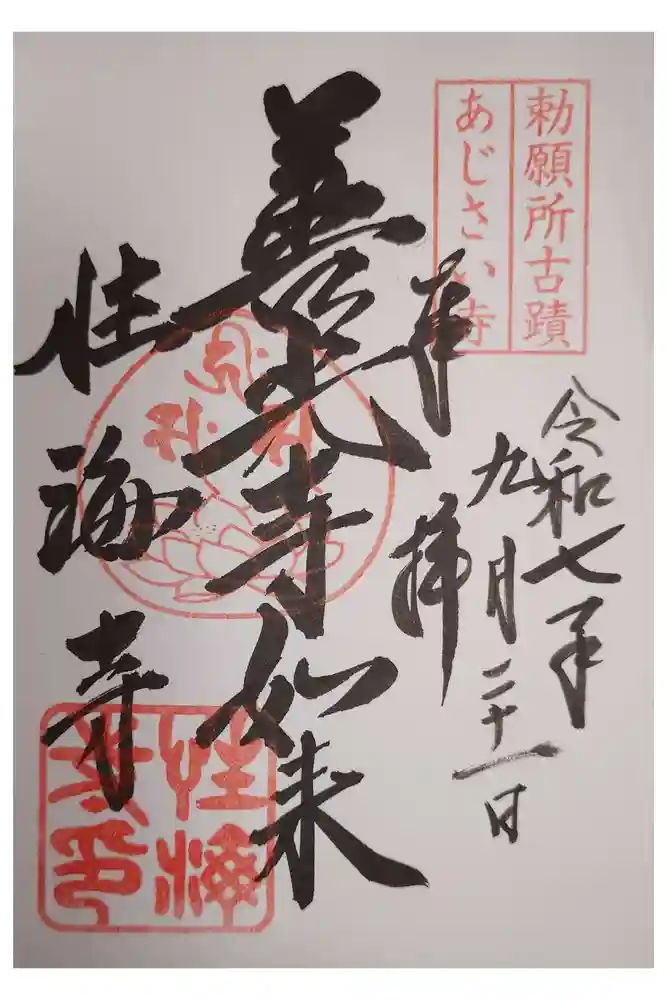 勅願所古蹟
あじさい寺
令和七年
九月二十一日
奉拝
善光寺如来
性海寺
性海
寺印